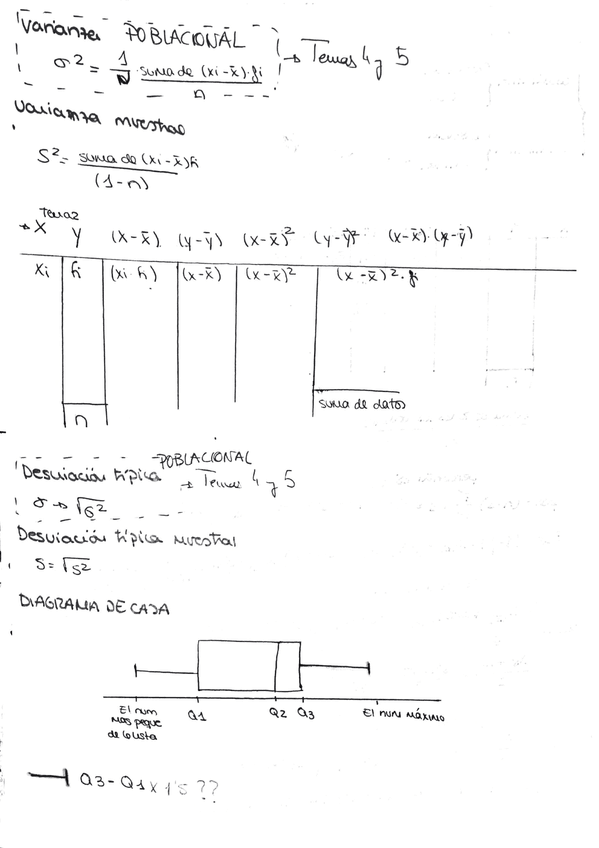 Varianza POBLACIONAL
σ² = 1/N · suma de (xi - x̄)·fi / n → Temas 4 y 5
Varianza muestral
S² = suma de (xi - x̄)fi / (1-n)
Tema2
→ X Y (x-x̄) (y-ȳ) (x-x̄)² (y-ȳ)² (x-x̄)·(y-ȳ)
xi fi (xi·fi) (x-x̄) (x-x̄)² (x-x̄)²·fi
suma de datos
n
Desviación típica POBLACIONAL → Temas 4 y 5
σ → √σ²
Desviación típica muestral
S = √S²
DIAGRAMA DE CAJA
El num más peque de la lista Q1 Q2 Q3 El num máximo
Q3 - Q1 x 1'5 ??